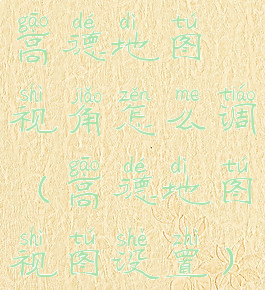 gāo dé dì tú
高德地图
shì jiǎo zěn me tiáo
视角怎么调
gāo dé dì tú
(高德地图
shì tú shè zhì
视图设置)